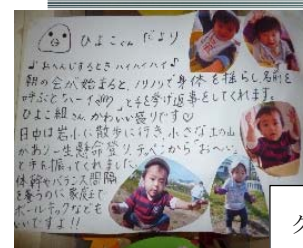 ひよこぐみ だより
♪おへんじするとき ハイハイハイ♪
朝の会が始まると、ノリノリで身体を揺らし、名前を
呼ぶと「ハーイ」と手を挙げ返事をしてくれます。
ひよこ組さん、かわいい盛りです♡
日中は岩小に散歩に行き、小さな土の山
があり一生懸命登り、てっぺんから「おーい」
と手を振ってくれました。
体幹やバランス感覚
を養うのに、家庭で
ボールキックなども
いいですよ!!
ク